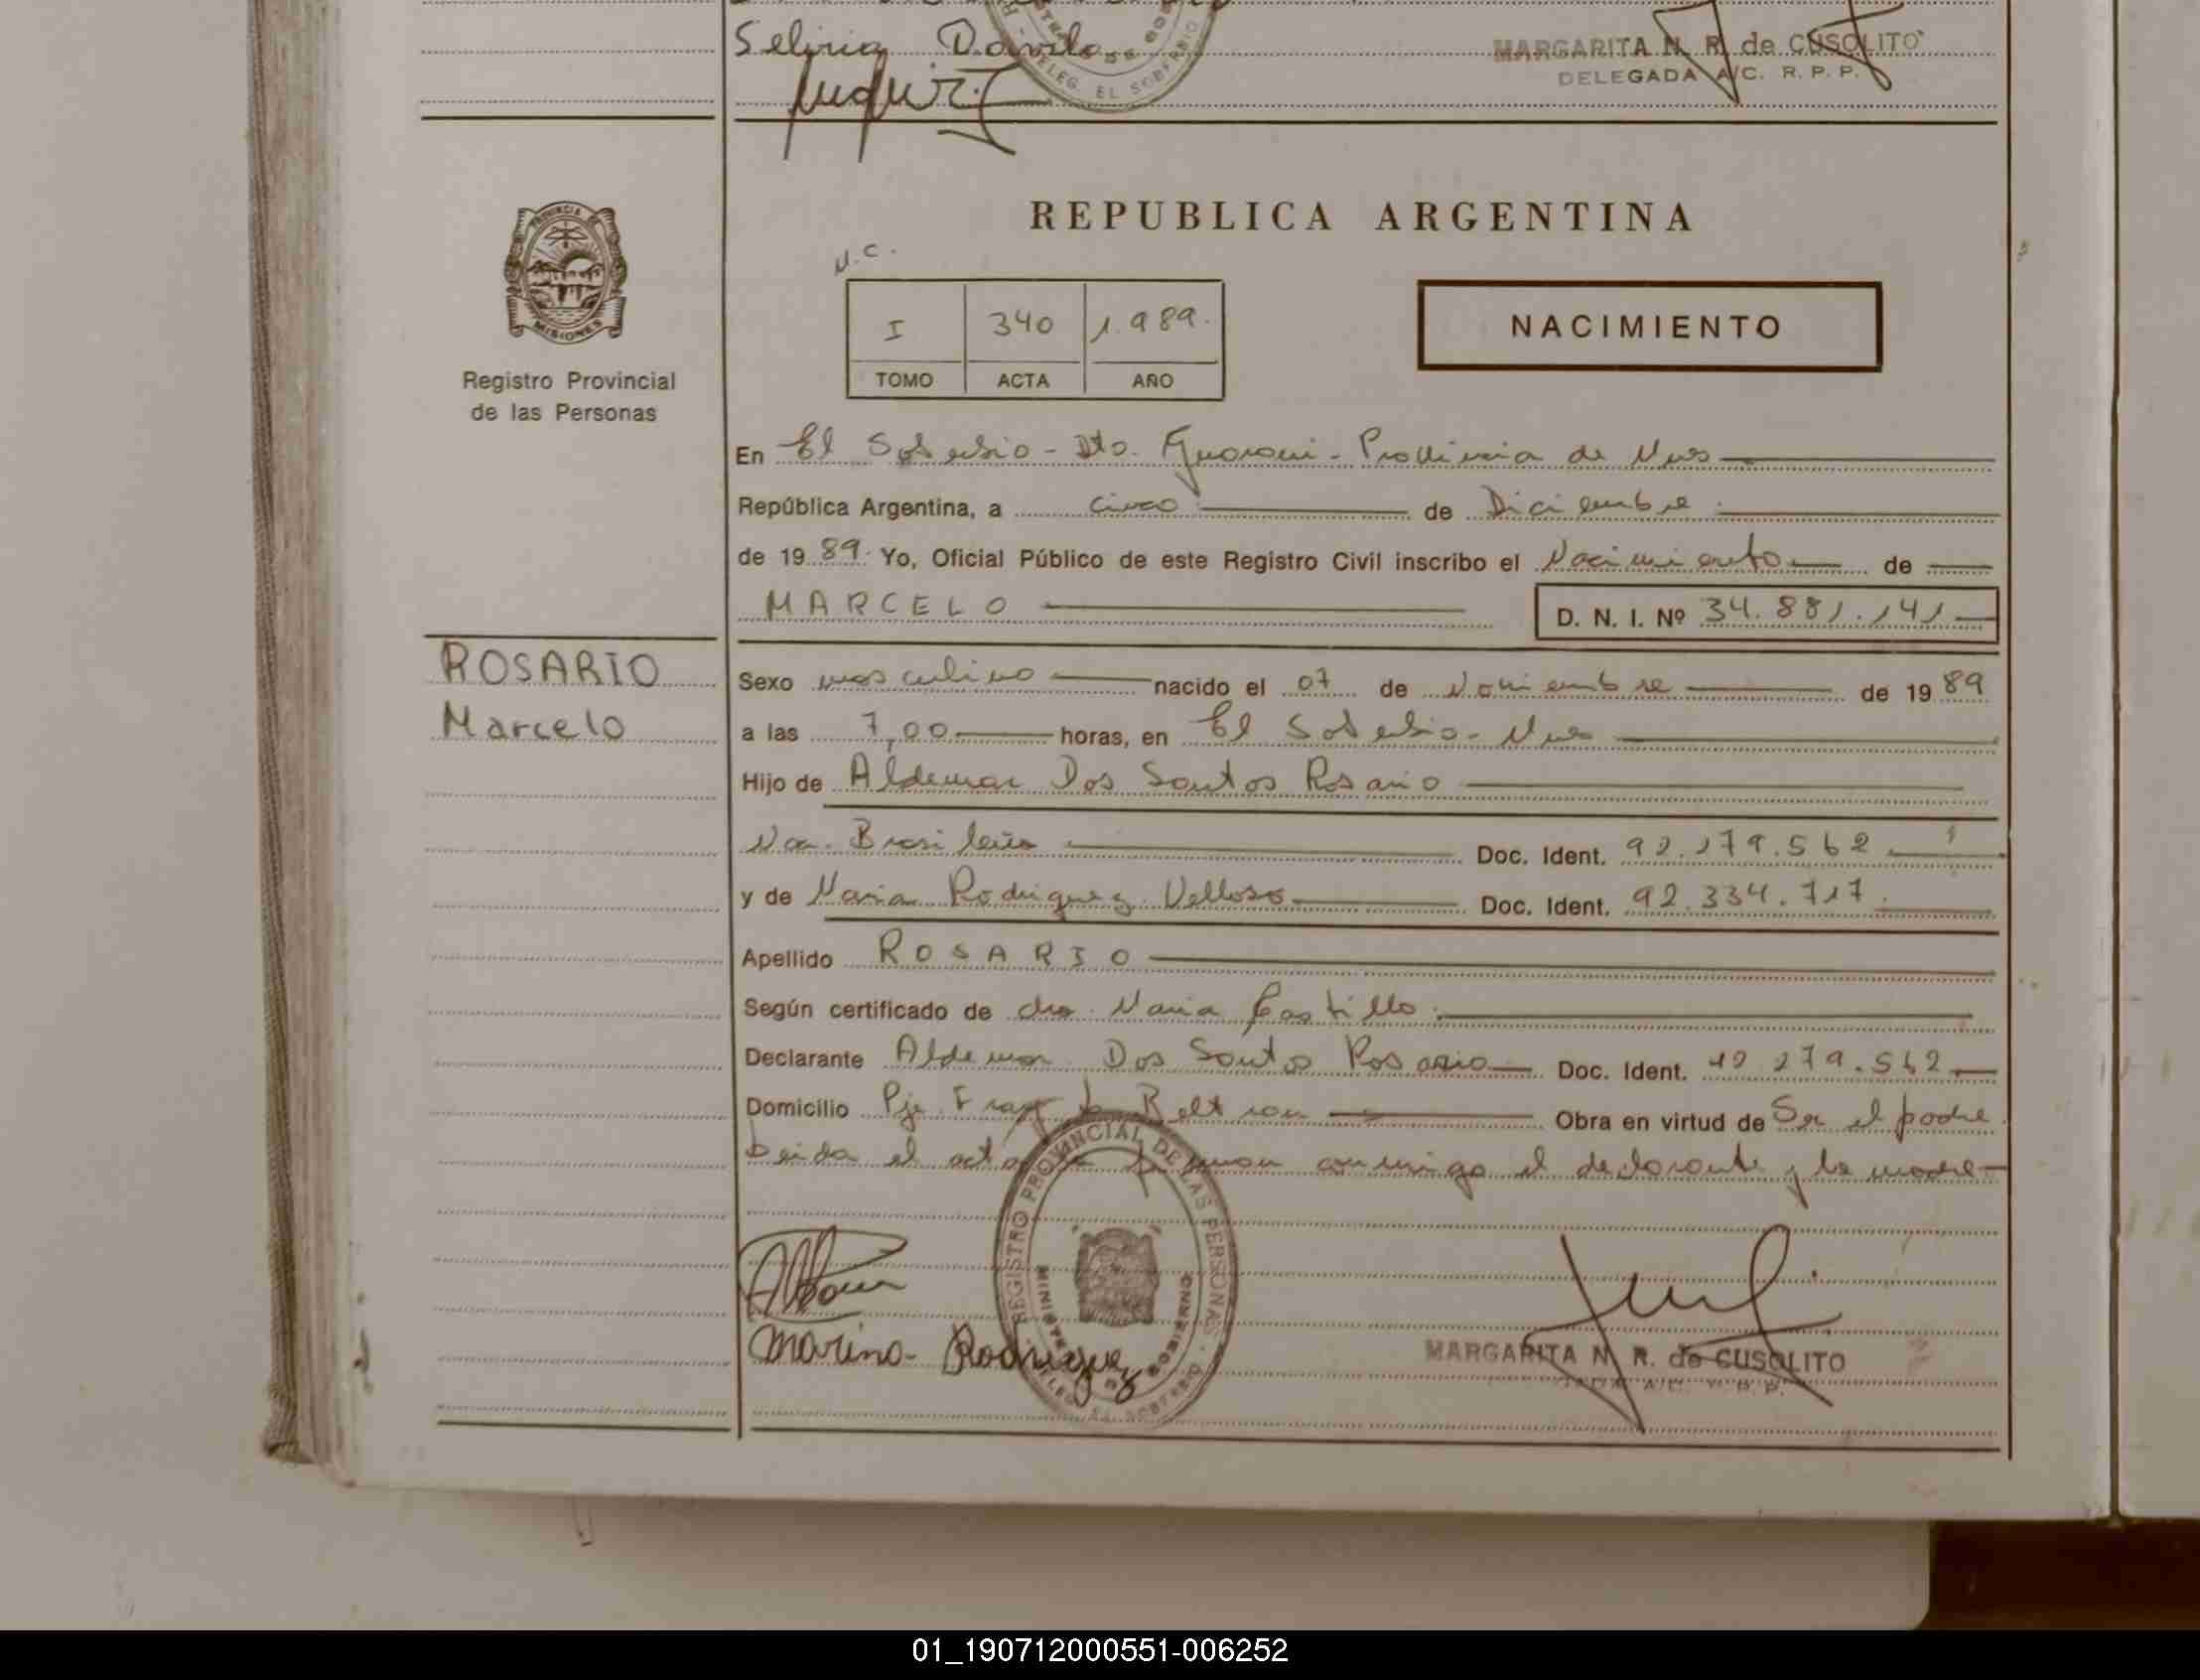 Seliria Davila
MARGARITA N. R. de CUSOLITO
DELEGADA A/C. R. P. P.
DELEG. EL SOBERBIO
REPUBLICA ARGENTINA
N.C.
PROVINCIA DE
MISIONES
I 340 1.989.
TOMO ACTA AÑO
NACIMIENTO
Registro Provincial
de las Personas
En El Soberbio - Dto. Guarani - Provincia de Mnes
República Argentina, a cinco de Diciembre
de 19 89. Yo, Oficial Público de este Registro Civil inscribo el Nacimiento de
MARCELO D. N. I. Nº 34.881.141
ROSARIO
Marcelo
Sexo masculino nacido el 07 de Noviembre de 19 89
a las 7,00 horas, en El Soberbio - Mnes
Hijo de Aldemar Dos Santos Rosario
Nac. Brasileña Doc. Ident. 92.279.562
y de Maria Rodriguez Velloso Doc. Ident. 92.334.717.
Apellido ROSARIO
Según certificado de dra. Maria Castillo.
Declarante Aldemar Dos Santos Rosario Doc. Ident. 92 279.562
Domicilio Pje. Fray L. Beltran Obra en virtud de Ser el padre
Leida el acta la firman conmigo el declarante y la madre
REGISTRO PROVINCIAL DE LAS PERSONAS
MINISTERIO DE GOBIERNO
DELEG. EL SOBERBIO
Marina Rodriguez
MARGARITA N. R. de CUSOLITO
01_190712000551-006252